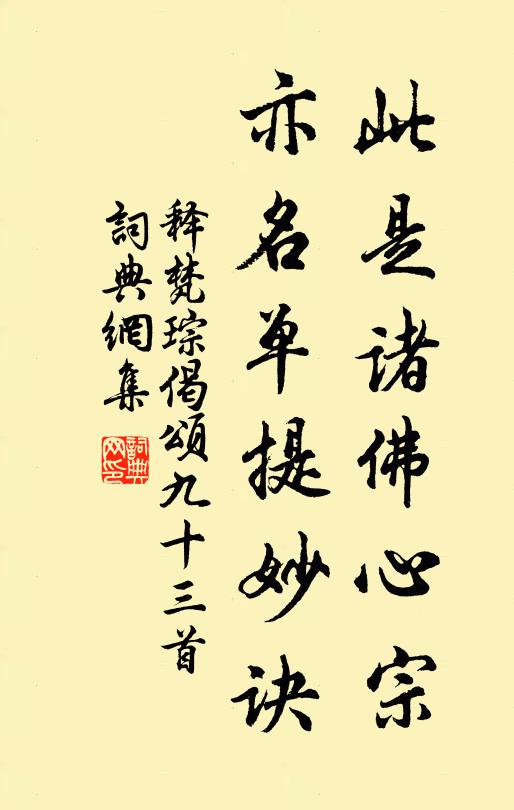 此是诸佛心宗
亦名单提妙诀
释梵琮偈颂九十三首
詞典網集
詞典網印